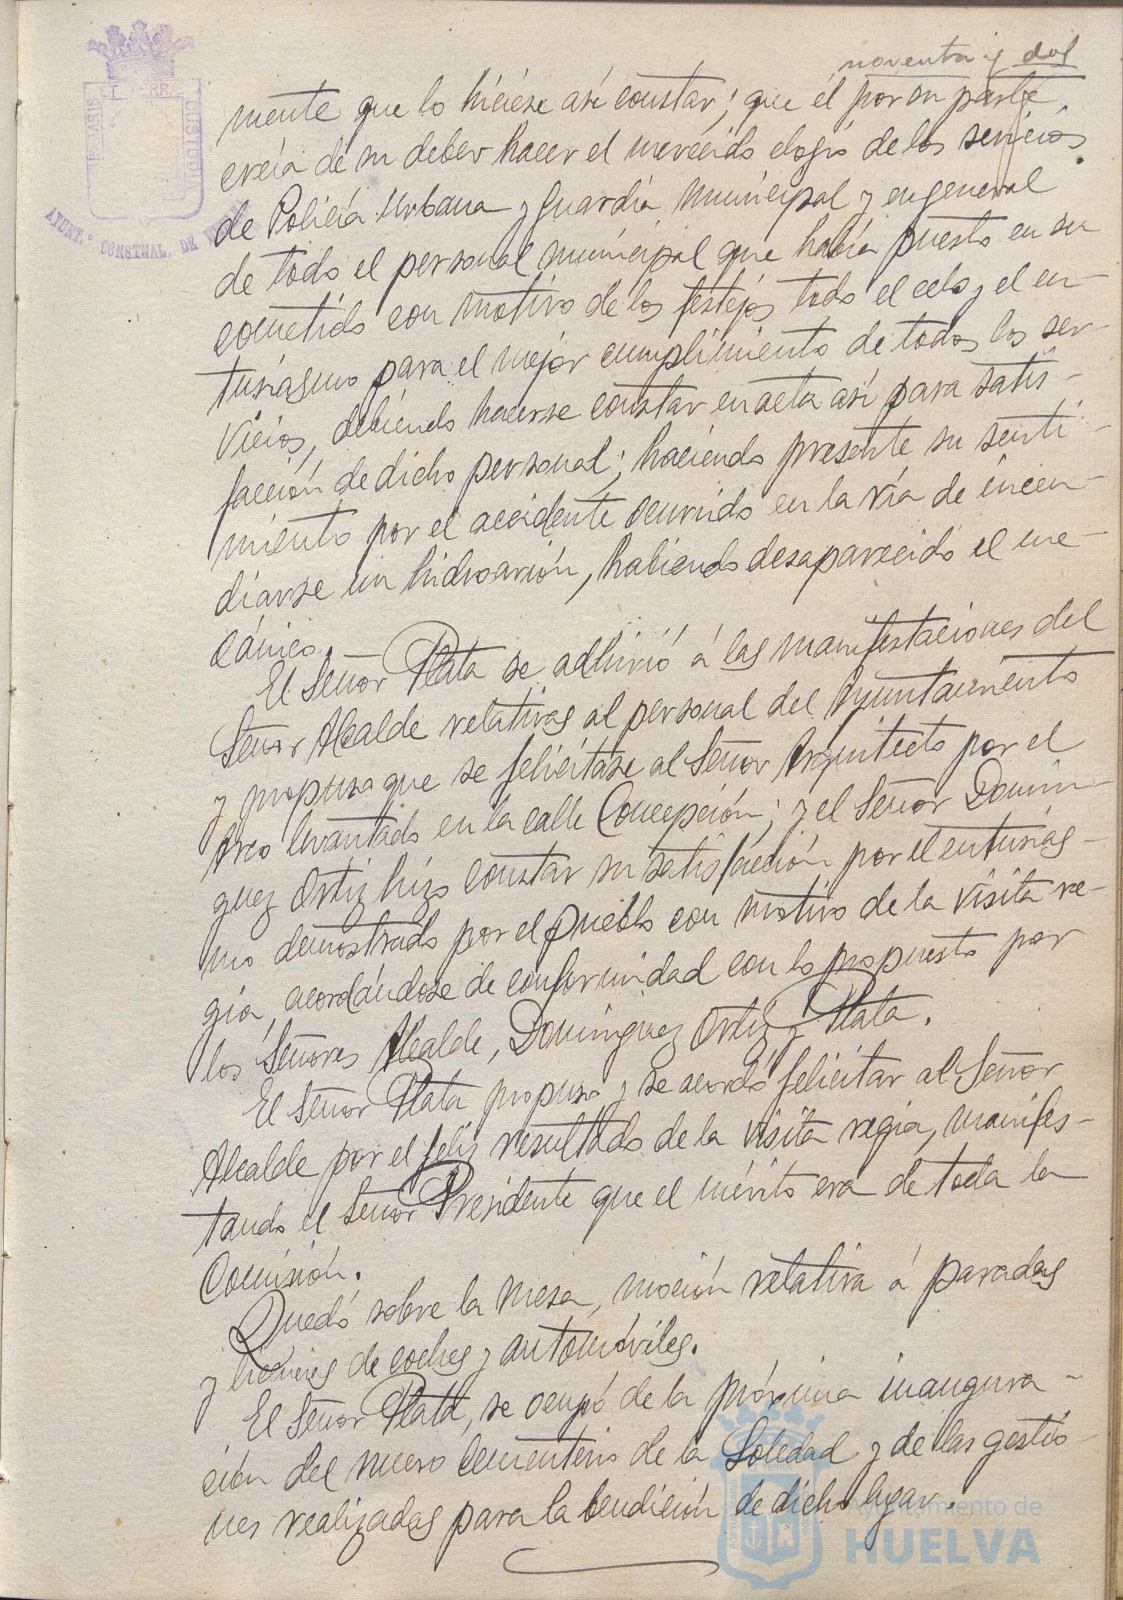 noventa y dos
mente que lo hiciese así constar; que él por su parte
creía de su deber hacer el merecido elogio de los servicios
de Policía Urbana y Guardia Municipal y en general
de todo el personal municipal que había puesto en su
cometido con motivo de los festejos todo el celo y el en-
tusiasmo para el mejor cumplimiento de todos los ser-
vicios, debiendo hacerse constar en acta así para satis-
facción de dicho personal; haciendo presente su senti-
miento por el accidente ocurrido en la ría de incen-
diarse un hidroavión, habiendo desaparecido el me-
cánico.
El Señor Plata se adhirió á las manifestaciones del
Señor Alcalde relativas al personal del Ayuntamiento
y propuso que se felicitase al Señor Arquitecto por el
Arco levantado en la calle Concepción; y el Señor Domin-
guez Ortiz hizo constar su satisfacción por el entusias-
mo demostrado por el pueblo con motivo de la visita re-
gia, acordándose de conformidad con lo propuesto por
los Señores Alcalde, Dominguez Ortiz y Plata.
El Señor Plata propuso y se acordó felicitar al Señor
Alcalde por el feliz resultado de la visita regia, manifes-
tando el Señor Presidente que el mérito era de toda la
Comisión.
Quedó sobre la mesa, moción relativa á paradas
y de coches y automóviles.
El Señor Plata, se ocupó de la próxima inaugura-
ción del nuevo Cementerio de la Soledad y de las gestio-
nes realizadas para la bendición de dicho lugar.
AYUNT.º CONSTNAL. DE
CUSTODIA
Ayuntamiento de
HUELVA